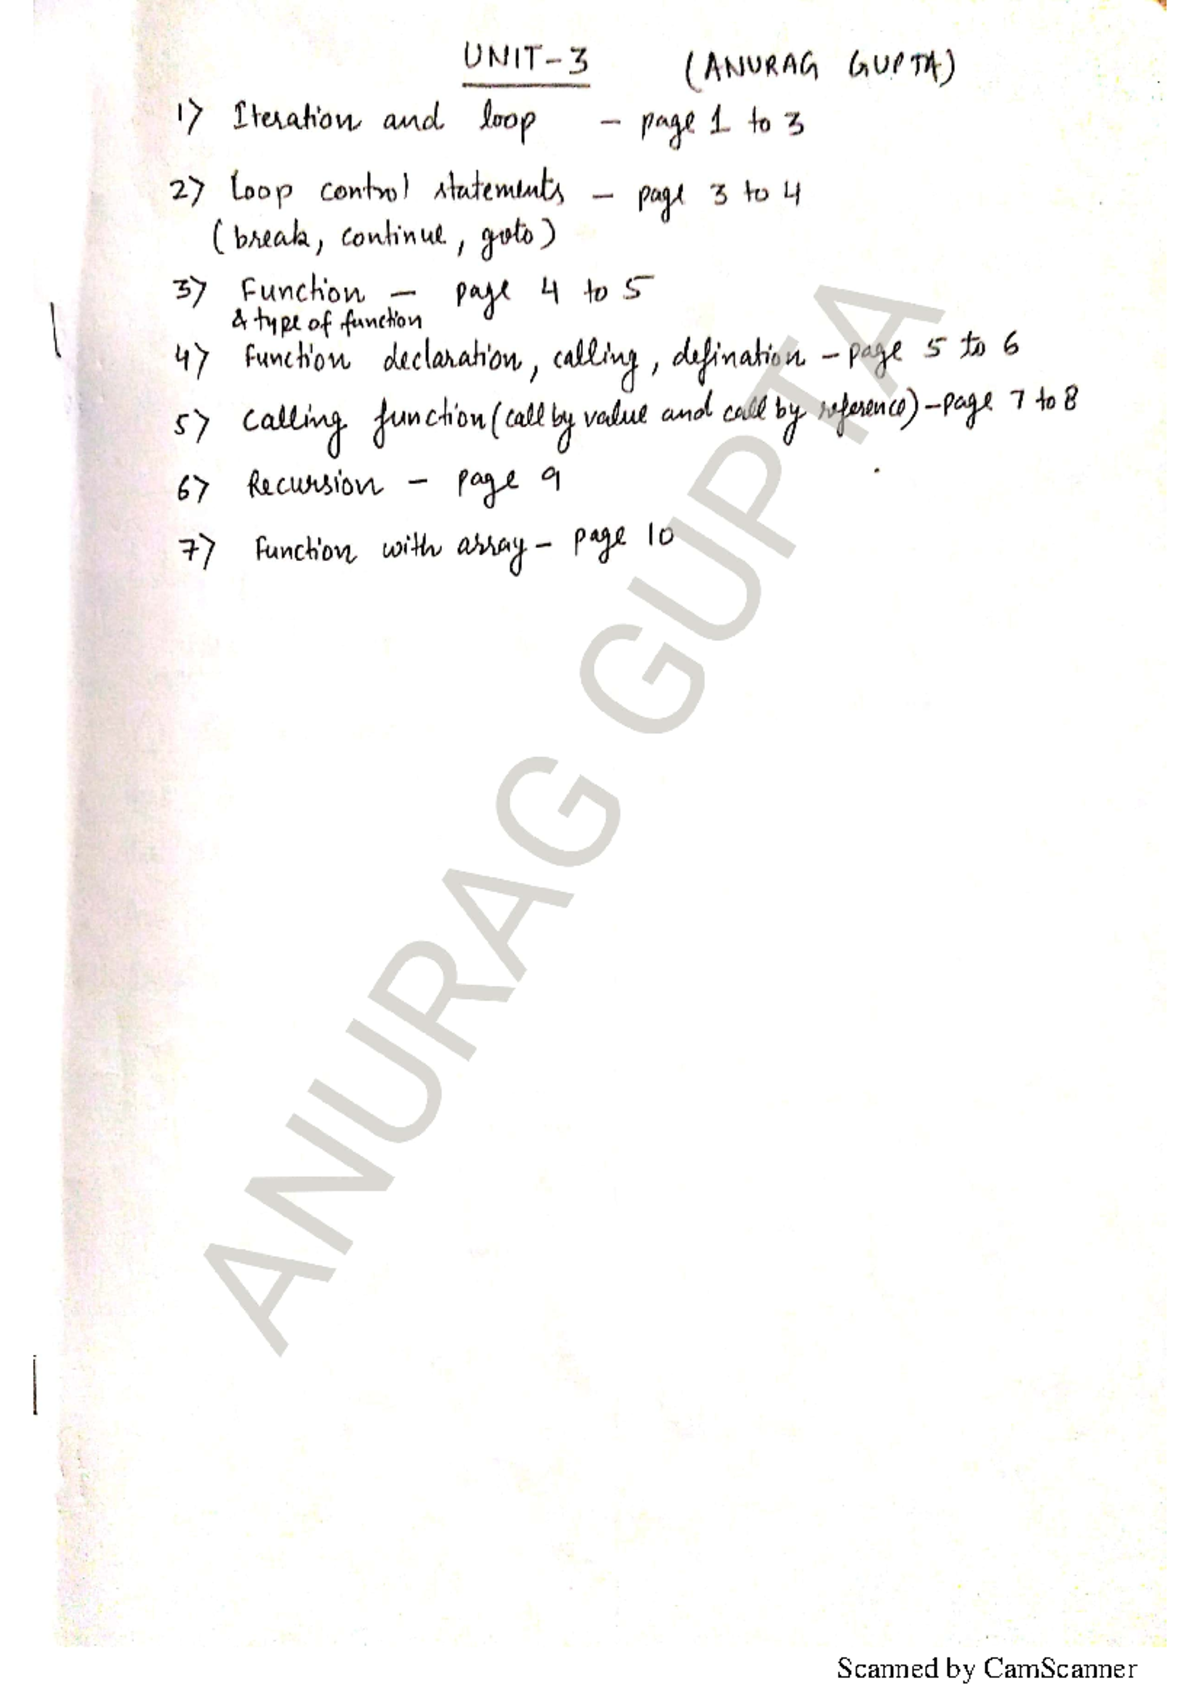 UNIT-3 (ANURAG GUPTA)
1) Iteration and loop – page 1 to 3
2) Loop control statements – page 3 to 4
(break, continue, goto)
3) Function – page 4 to 5
& type of function
4) Function declaration, calling, defination – page 5 to 6
5) Calling function (call by value and call by reference) – page 7 to 8
6) Recursion – page 9
7) Function with array – page 10
ANURAG GUPTA
Scanned by CamScanner